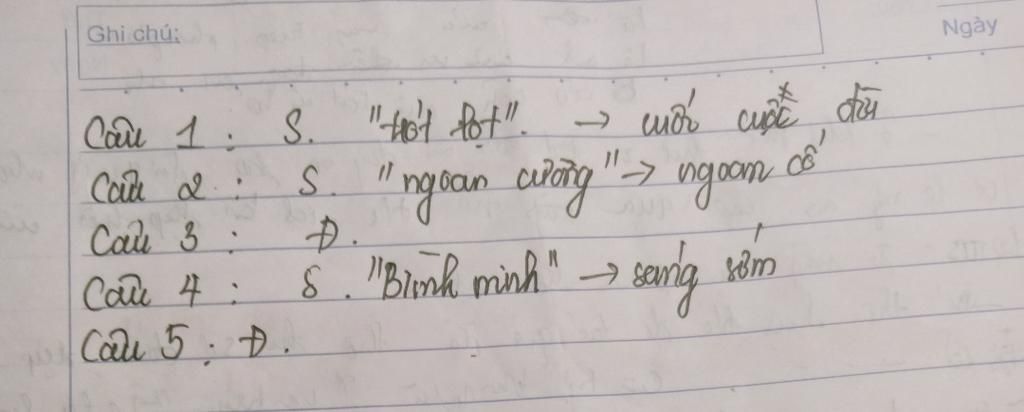 Ghi chú:
Ngày
Câu 1 : S. "tót tọt". → cuối cuộc đời
Câu 2 : S. "ngoan cường" → ngoan cố
Câu 3 : Đ.
Câu 4 : S. "Bình minh" → sáng sớm
Câu 5 : Đ.